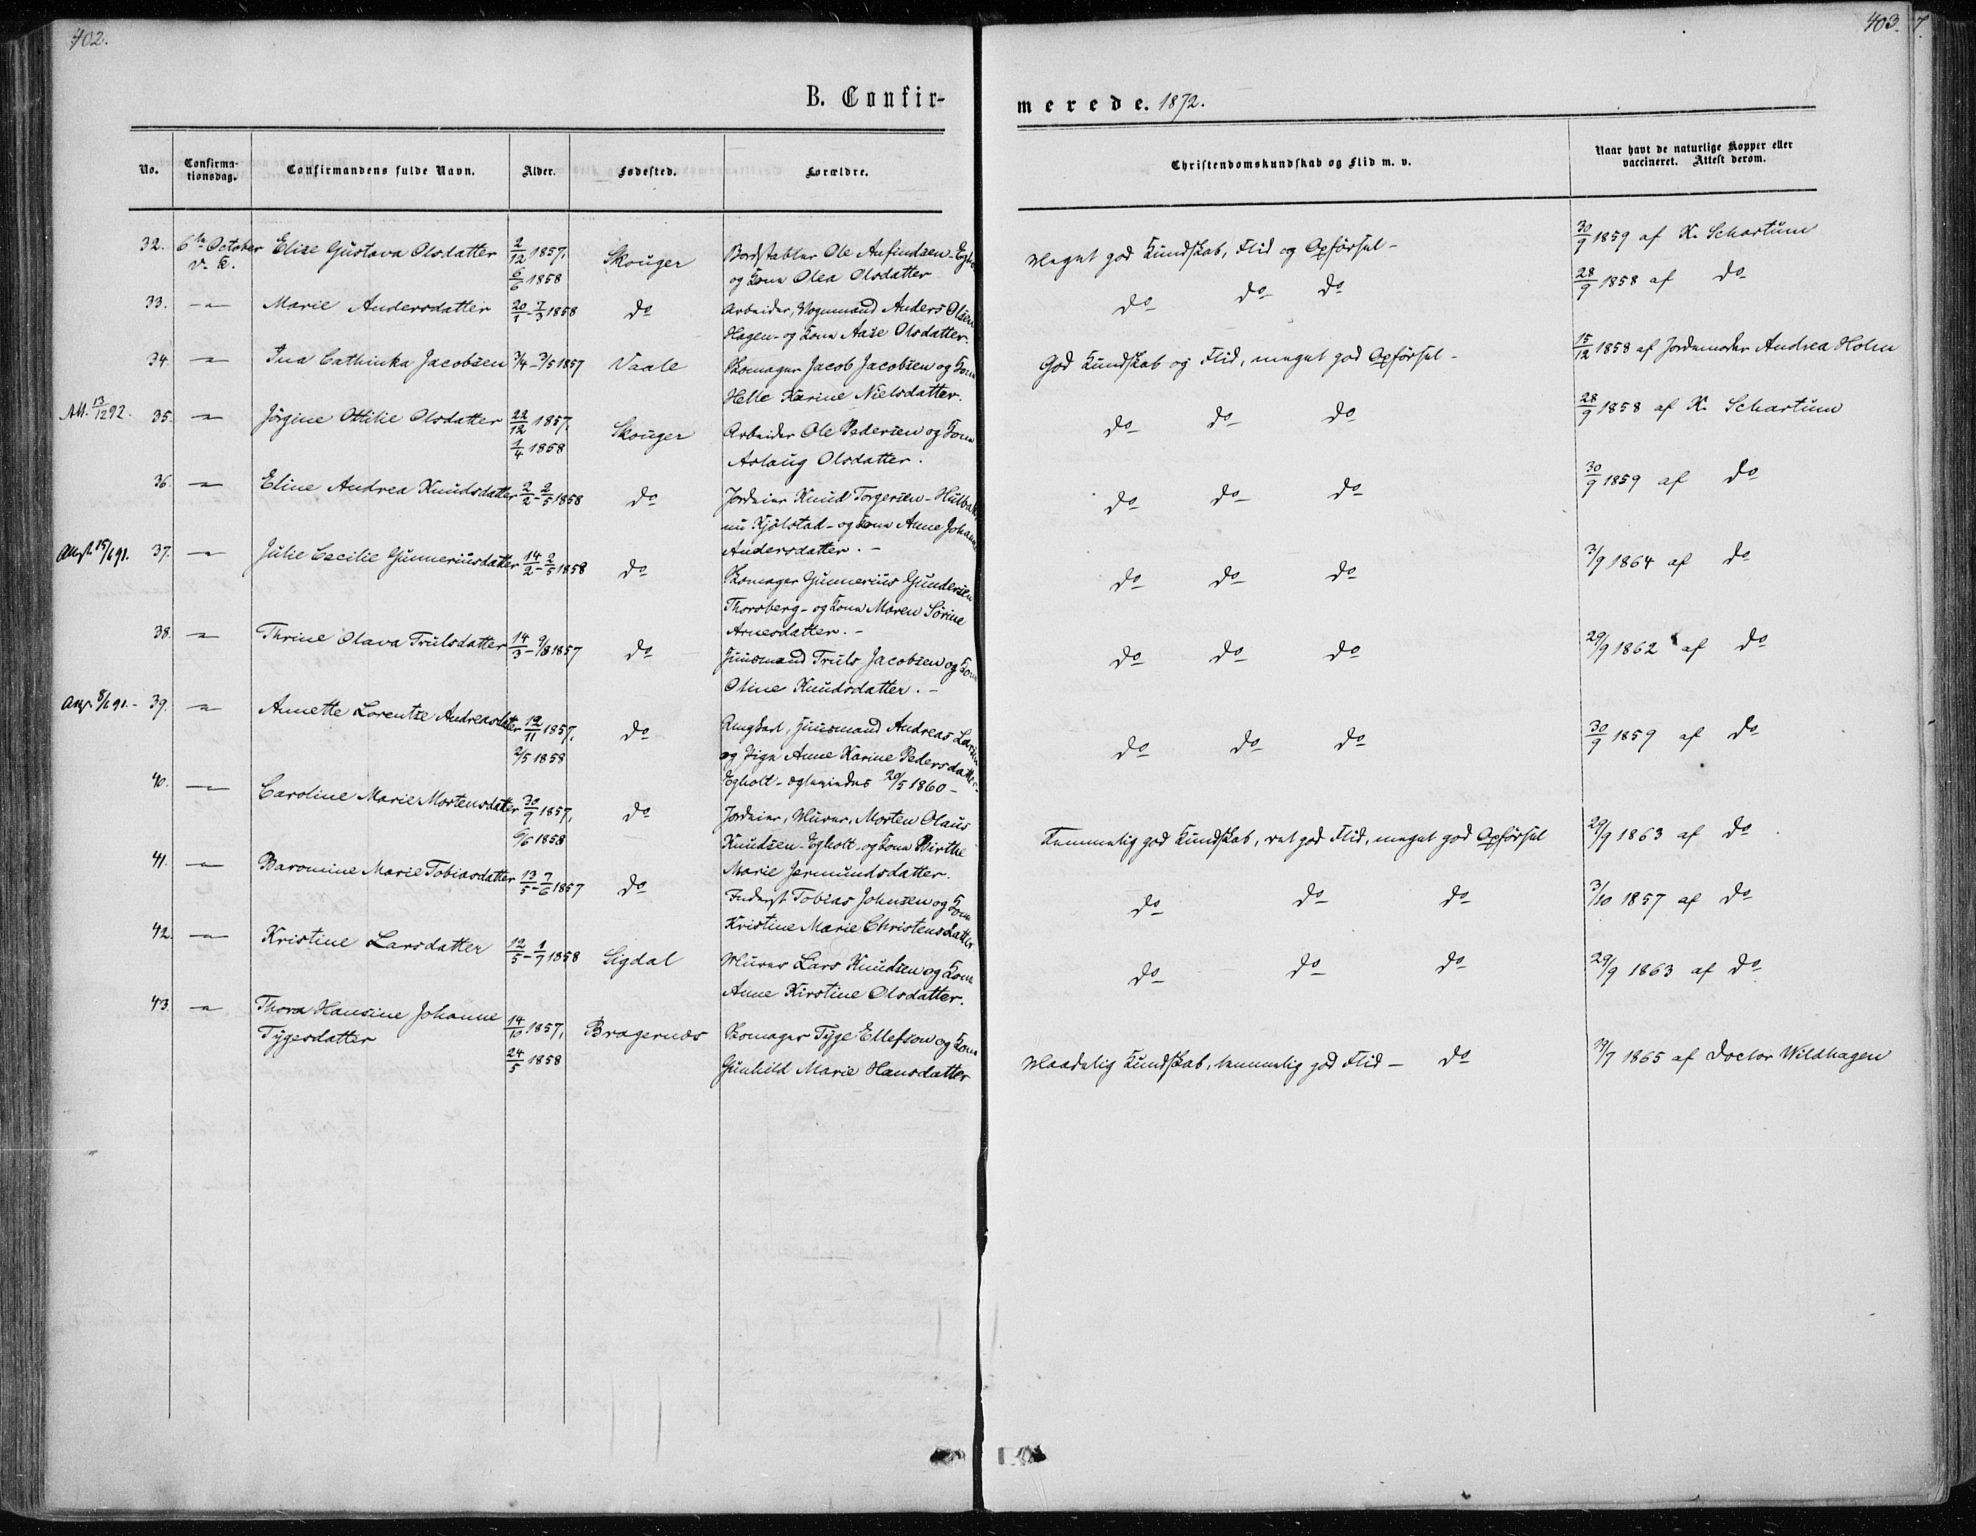 402.
403.
7.
B. Confir-
merede. 1872.
No.
Confirma-
tionsdag.
Confirmandens fulde Navn.
Alder.
Fødested.
Forældre.
Christendomskundskab og Flid m. v.
Naar havt de naturlige Kopper eller
vaccineret. Attest derom.
32. 6te October Elise Gustava Olsdatter 2/12 1857, Skouger Bordstabler Ole Anfindsen
v. K. 6/6 1858 og Kone Olea Olsdatter
Meget god Kundskab, Flid og Opførsel - 30/9 1859 af K. Schartum
33. -"- Marie Andersdatter 20/1 - 7/3 1858 do Arbeider, Anders Olsen
Hagen - og Kone Aase Olsdatter.
do do do 28/9 1858 af do
34. -"- Ina Cathinka Jacobsen 7/4 - 3/5 1857 Vaale Skomager Jacob Jacobsen og Kone
Helle Karine Nielsdatter.
God Kundskab og Flid, meget god Opførsel - 15/12 1858 af Jordemoder Andrea Holm
Att. 13/12 92. 35. -"- Jørgine Ottilie Olsdatter 22/12 1857, Skouger Arbeider Ole Pedersen og Kone
1/4 1858 Aslaug Olsdatter.
do do do 28/9 1858 af K. Schartum
36. -"- Eline Andrea Knudsdatter 2/2 - 2/5 1858 do Jordeier Knud Torgersen -
nu Kjølstad - og Kone Anne Johanne
Andersdatter. -
do do do 30/9 1859 af do
15/6 91. 37. -"- Julie Cecilie Gunneriusdatter 14/2 - 2/5 1858 do Skomager Gunnerius Gundersen
Thorsberg - og Kone Maren Sørine
Arnesdatter. -
do do do 3/9 1864 af do
38. -"- Thrine Olava Trulsdatter 14/3 - 9/8 1857 do Huusmand Truls Jacobsen og Kone
Oline Knudsdatter. -
do do do 29/9 1862 af do
8/6 91. - 39. -"- Annette Lorentze Andreasdatter 12/11 1857, do Ungkarl, Huusmand Andreas Larsen
2/5 1858 og Pige Anne Karine Pedersdatter
Egholt - ægteviedes 29/5 1860 -
do do do 30/9 1859 af do
40. -"- Caroline Marie Mortensdatter 30/9 1857, do Jordeier, Murer, Morten Olaus
6/6 1858 Knudsen Egholt - og Kone Birthe
Marie Jermundsdatter.
Temmelig god Kundskab, ret god Flid, meget god Opførsel 29/9 1863 af do
41. -"- Baromine Marie Tobiasdatter 13/5 - 7/6 1857 do Inderst Tobias Johnsen og Kone
Kristine Marie Christensdatter
do do do 3/10 1857 af do
42. -"- Kristine Larsdatter 12/5 - 1/7 1858 Sigdal Murer Lars Knudsen og Kone
Anne Kirstine Olsdatter.
do do do 29/9 1863 af do
43. -"- Thora Hansine Johanne 14/10 1857, Bragernæs Skomager Tyge Ellefson og Kone
Tygesdatter 24/5 1858 Gunhild Marie Hansdatter
Maadelig Kundskab, temmelig god Flid - do 7/7 1865 af Doctor Wildhagen